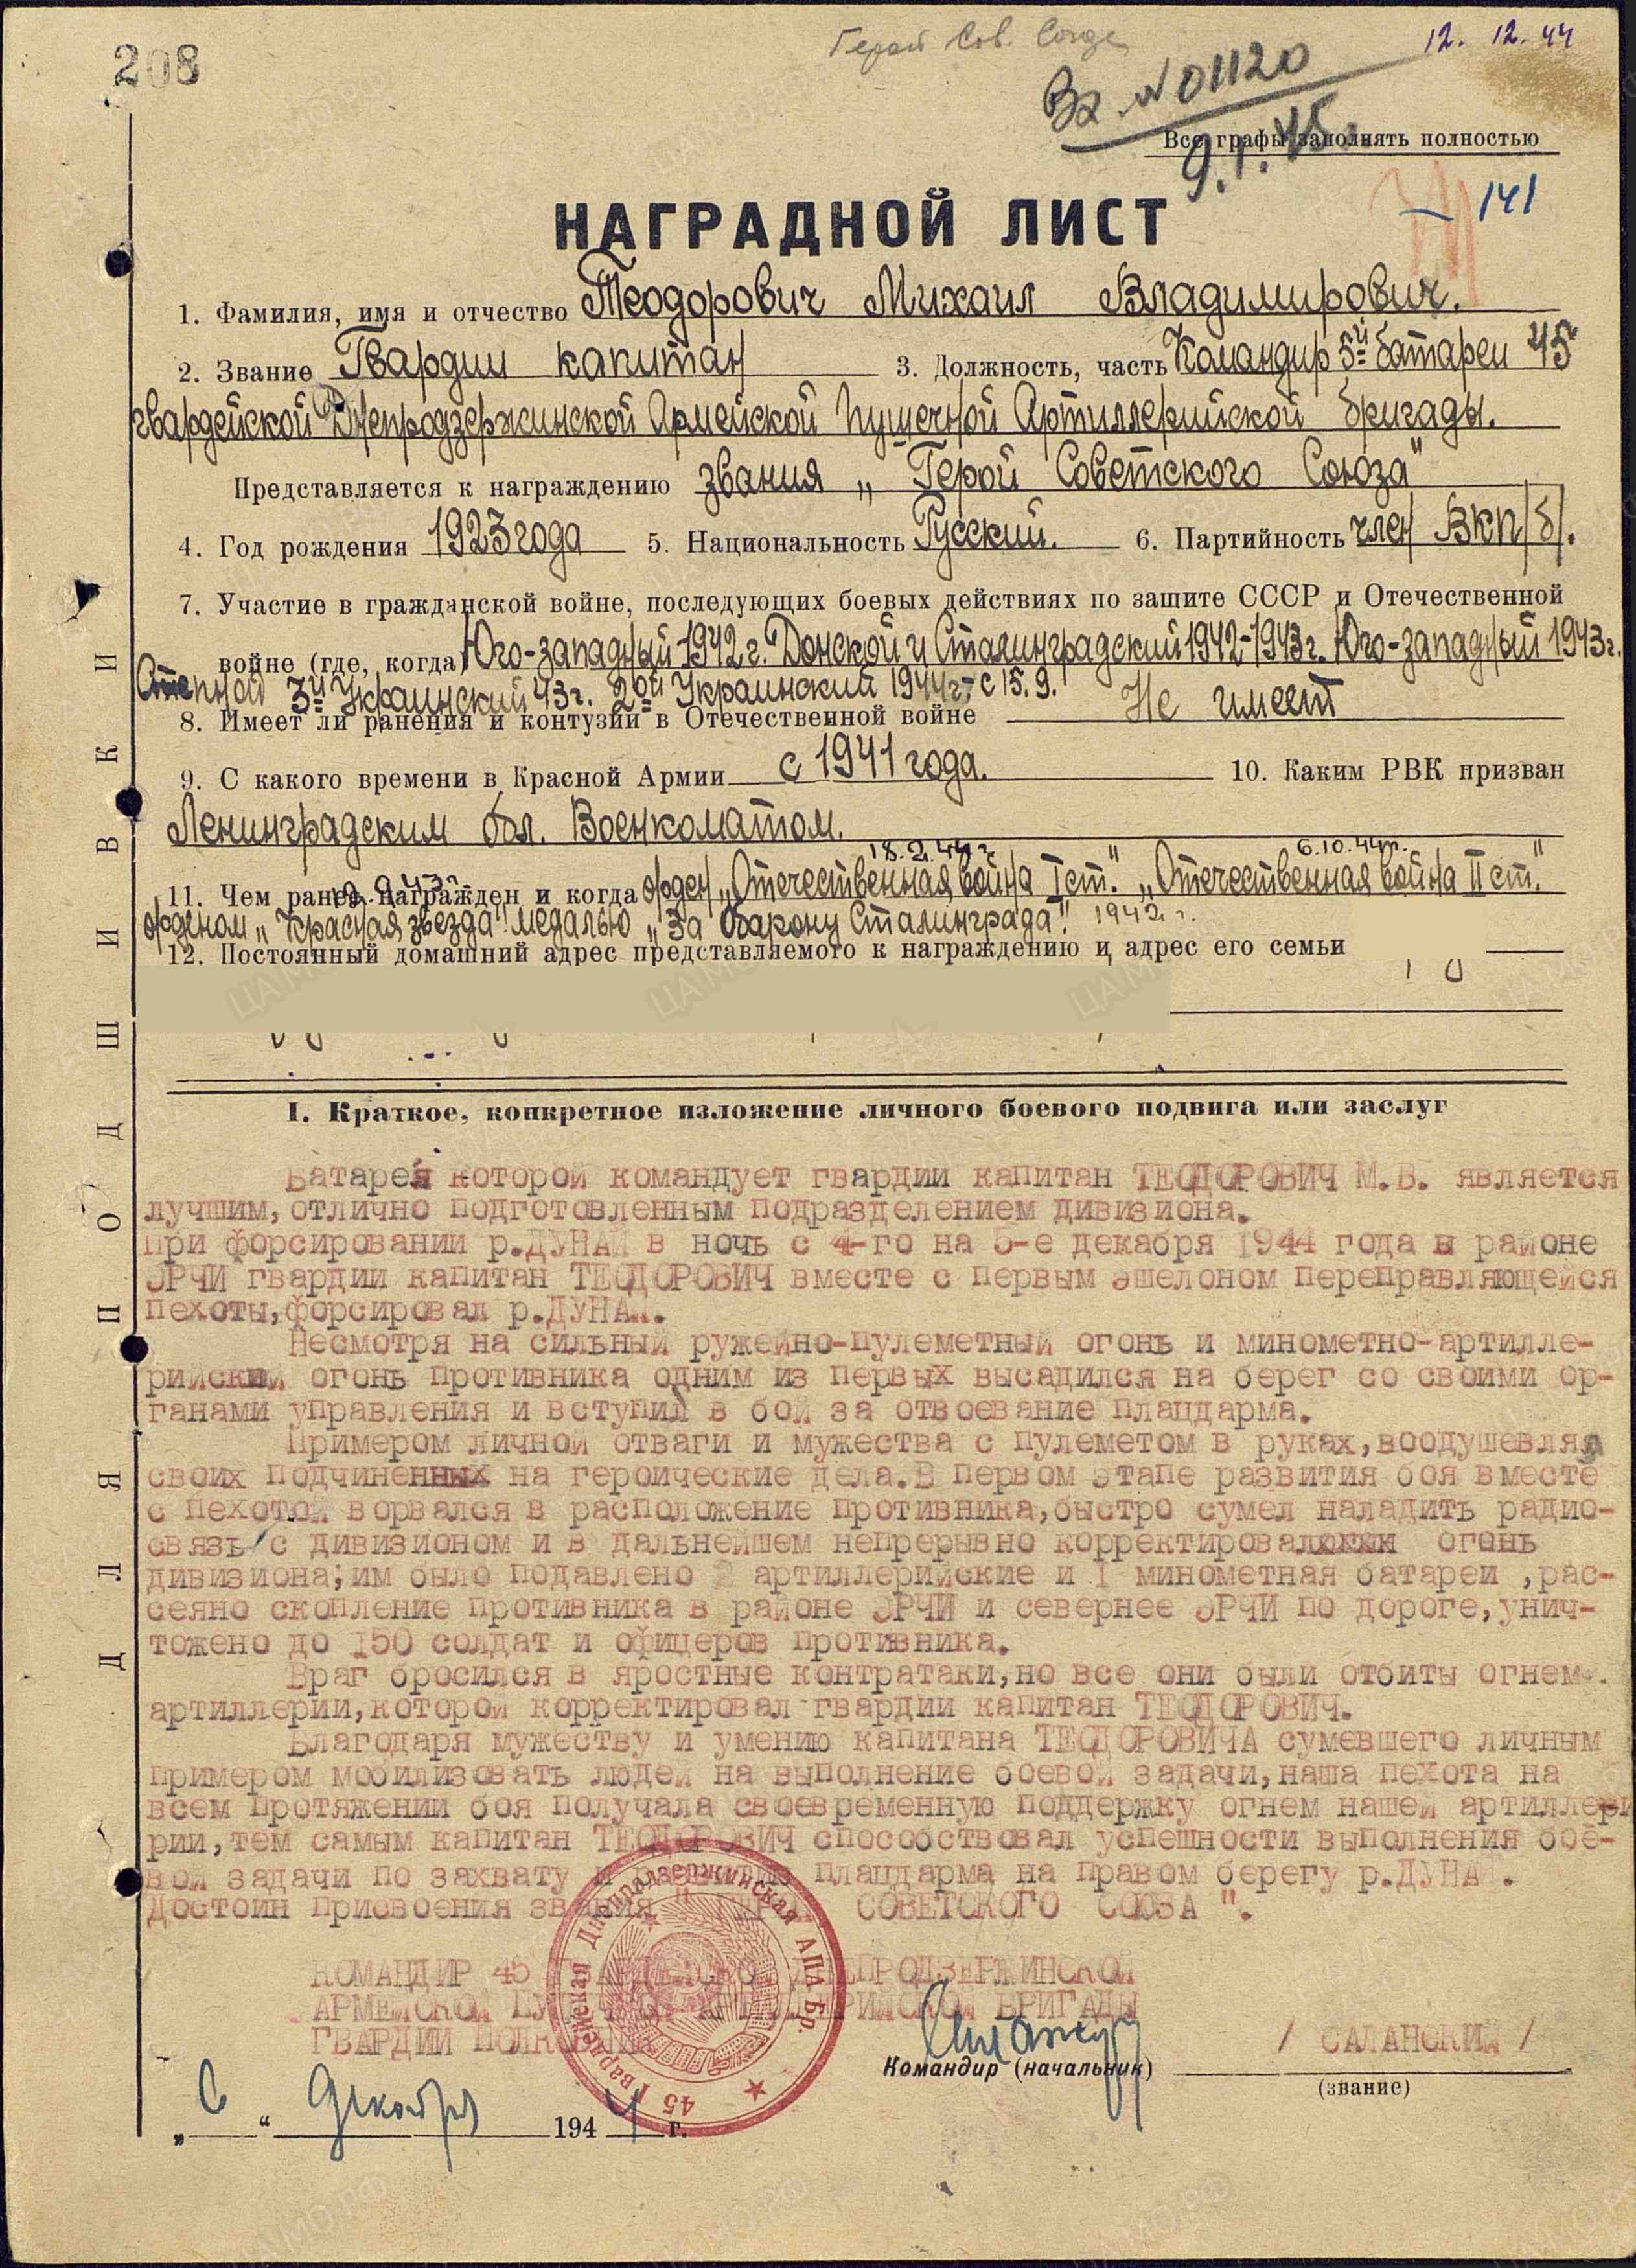 208
Герой Сов. Союз
12. 12. 44
Вх. №01120
9.1.45.
Все графы заполнять полностью
141
НАГРАДНОЙ ЛИСТ
1. Фамилия, имя и отчество Теодорович Михаил Владимирович.
2. Звание Гвардии капитан 3. Должность, часть Командир 5й батареи 45
гвардейской Днепродзержинской Армейской Пушечной Артиллерийской бригады.
Представляется к награждению звания „Герой Советского Союза"
4. Год рождения 1923 года 5. Национальность Русский. 6. Партийность член ВКП/б/.
7. Участие в гражданской войне, последующих боевых действиях по защите СССР и Отечественной
войне (где, когда) Юго-западный 1942 г. Донской и Сталинградский 1942-1943 г. Юго-западный 1943 г.
Степной 3й Украинский 43 г. 2ой Украинский 1944 г. с 15.9.
8. Имеет ли ранения и контузии в Отечественной войне Не имеет
9. С какого времени в Красной Армии с 1941 года. 10. Каким РВК призван
Ленинградским обл. Военкоматом.
18.2.44 г. 6.10.44 г.
11. Чем ранее награжден и когда орден „Отечественная война I ст." „Отечественная война II ст."
орденом „Красная звезда" медалью „За Оборону Сталинграда" 1942 г.
12. Постоянный домашний адрес представляемого к награждению и адрес его семьи
I. Краткое, конкретное изложение личного боевого подвига или заслуг
Батарея которой командует гвардии капитан ТЕОДОРОВИЧ М.В. является
лучшим, отлично подготовленным подразделением дивизиона.
При форсировании р.ДУНАЙ в ночь с 4-го на 5-е декабря 1944 года в районе
ЭРЧИ гвардии капитан ТЕОДОРОВИЧ вместе с первым эшелоном переправляющейся
пехоты, форсировал р.ДУНАЙ.
Несмотря на сильный ружейно-пулеметный огонь и минометно-артилле-
рийский огонь противника одним из первых высадился на берег со своими ор-
ганами управления и вступил в бой за отвоевание плацдарма.
Примером личной отваги и мужества с пулеметом в руках, воодушевлял
своих подчиненных на героические дела. В первом этапе развития боя вместе
с пехотой ворвался в расположение противника, быстро сумел наладить радио-
связь с дивизионом и в дальнейшем непрерывно корректировал огонь
дивизиона; им было подавлено 2 артиллерийские и I минометная батареи , рас-
сеяно скопление противника в районе ЭРЧИ и севернее ЭРЧИ по дороге, унич-
тожено до 150 солдат и офицеров противника.
Враг бросился в яростные контратаки, но все они были отбиты огнем
артиллерии, которой корректировал гвардии капитан ТЕОДОРОВИЧ.
Благодаря мужеству и умению капитана ТЕОДОРОВИЧА сумевшего личным
примером мобилизовать людей на выполнение боевой задачи, наша пехота на
всем протяжении боя получала своевременную поддержку огнем нашей артиллери
рии, тем самым капитан ТЕОДОРОВИЧ способствовал успешности выполнения бое-
вой задачи по захвату и развитию плацдарма на правом берегу р.ДУНАЙ.
Достоин присвоения звания " ГЕРОЙ СОВЕТСКОГО СОЮЗА ".
КОМАНДИР 45 ГВАРДЕЙСКОЙ ДНЕПРОДЗЕРЖИНСКОЙ
АРМЕЙСКОЙ ПУШЕЧНОЙ АРТИЛЛЕРИЙСКОЙ БРИГАДЫ
ГВАРДИИ ПОЛКОВНИК / САЛАНСКИЙ /
Командир (начальник)
(звание)
„ 6 “ Декабря 1944 г.
45 Гвардейская Днепродзержинская АПА Бр.
ДЛЯ ПОДШИВКИ